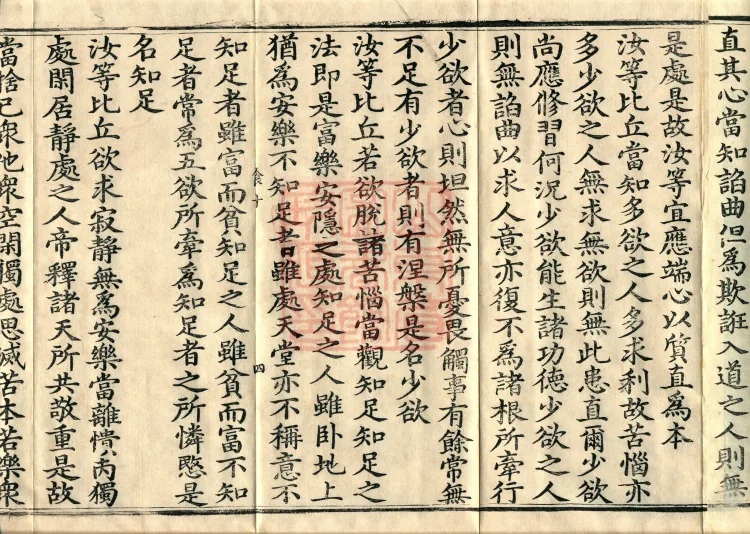 直其心當知諂曲但為欺誑入道之人則無
是處是故汝等宜應端心以質直為本
汝等比丘當知多欲之人多求利故苦惱亦
多少欲之人無求無欲則無此患直爾少欲
尚應修習何況少欲能生諸功德少欲之人
則無諂曲以求人意亦復不為諸根所牽行
少欲者心則坦然無所憂畏觸事有餘常無
不足有少欲者則有涅槃是名少欲
汝等比丘若欲脫諸苦惱當觀知足知足之
法即是富樂安隱之處知足之人雖卧地上
猶為安樂不知足者雖處天堂亦不稱意不
食十 四
知足者雖富而貧知足之人雖貧而富不知
足者常為五欲所牽為知足者之所憐愍是
名知足
汝等比丘欲求寂靜無為安樂當離憒丙獨
處閑居靜處之人帝釋諸天所共敬重是故
當捨己衆他衆空閑獨處思滅苦本若樂衆